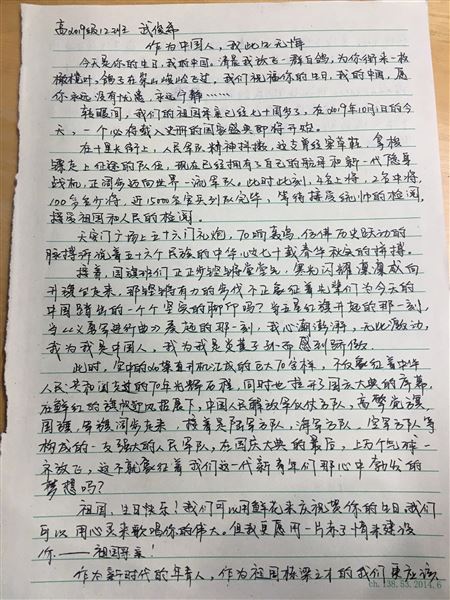 高2019级12班 武俊希
作为中国人，我此生无悔
今天是你的生日，我的中国。清晨我放飞一群白鸽，为你衔来一枚
橄榄叶，鸽子在崇山峻岭飞过，我们祝福你的生日，我的中国，愿
你永远没有忧患，永远宁静……
转眼间，我们的祖国母亲已经七十周岁了，在2019年10月1日的今
天，一个必将载入史册的国家盛典即将开始。
在十里长街上，人民军队精神抖擞，这支曾经穿草鞋，拿梭
镖走上征途的队伍，现在已经拥有了自己的航母和新一代隐身
战机，正阔步迈向世界一流军队。此时此刻，4名上将，2名中将，
100名少将，近15000名官兵列队完毕，等待接受统帅的检阅，
接受祖国和人民的检阅。
天安门广场上五十六门礼炮，70响轰鸣，仿佛历史跃动的
脉搏奔流着五十六个民族的中华心这七十载春华秋实的拼搏。
接着，国旗班们正正步铿锵，寒光闪耀凛凛威向
升旗台走来，那铿锵有力的步伐不正象征着先辈们为今天的
中国踏出的一个个坚实的脚印吗？当五星红旗升起的那一刻，
当《义勇军进行曲》奏起的那一刻，我心潮澎湃，无比激动，
我为我是中国人，我为我是炎黄子孙而感到骄傲。
此时，空中的20架直升机汇成的巨大70字样，不仅象征着中华
人民共和国走过的70年光辉历程，同时也拉开了国庆大典的序幕，
在鲜红的旗帜迎风招展下，中国人民解放军仪仗方队，高擎党旗，
国旗，军旗阔步走来，接着是陆军方队，海军方队，空军方队等
构成的一支强大的人民军队，在国庆大典的最后，上万个气球一
齐放飞，这不就象征着我们这一代新青年们那心中勃发的
梦想吗？
祖国，生日快乐！我们可以用鲜花来庆祝贺你的生日，我们
可以用心灵来歌唱你的伟大，但我更愿用一片赤子情来建设
你——祖国母亲！
作为新时代的年青人，作为祖国栋梁之才的我们更应该